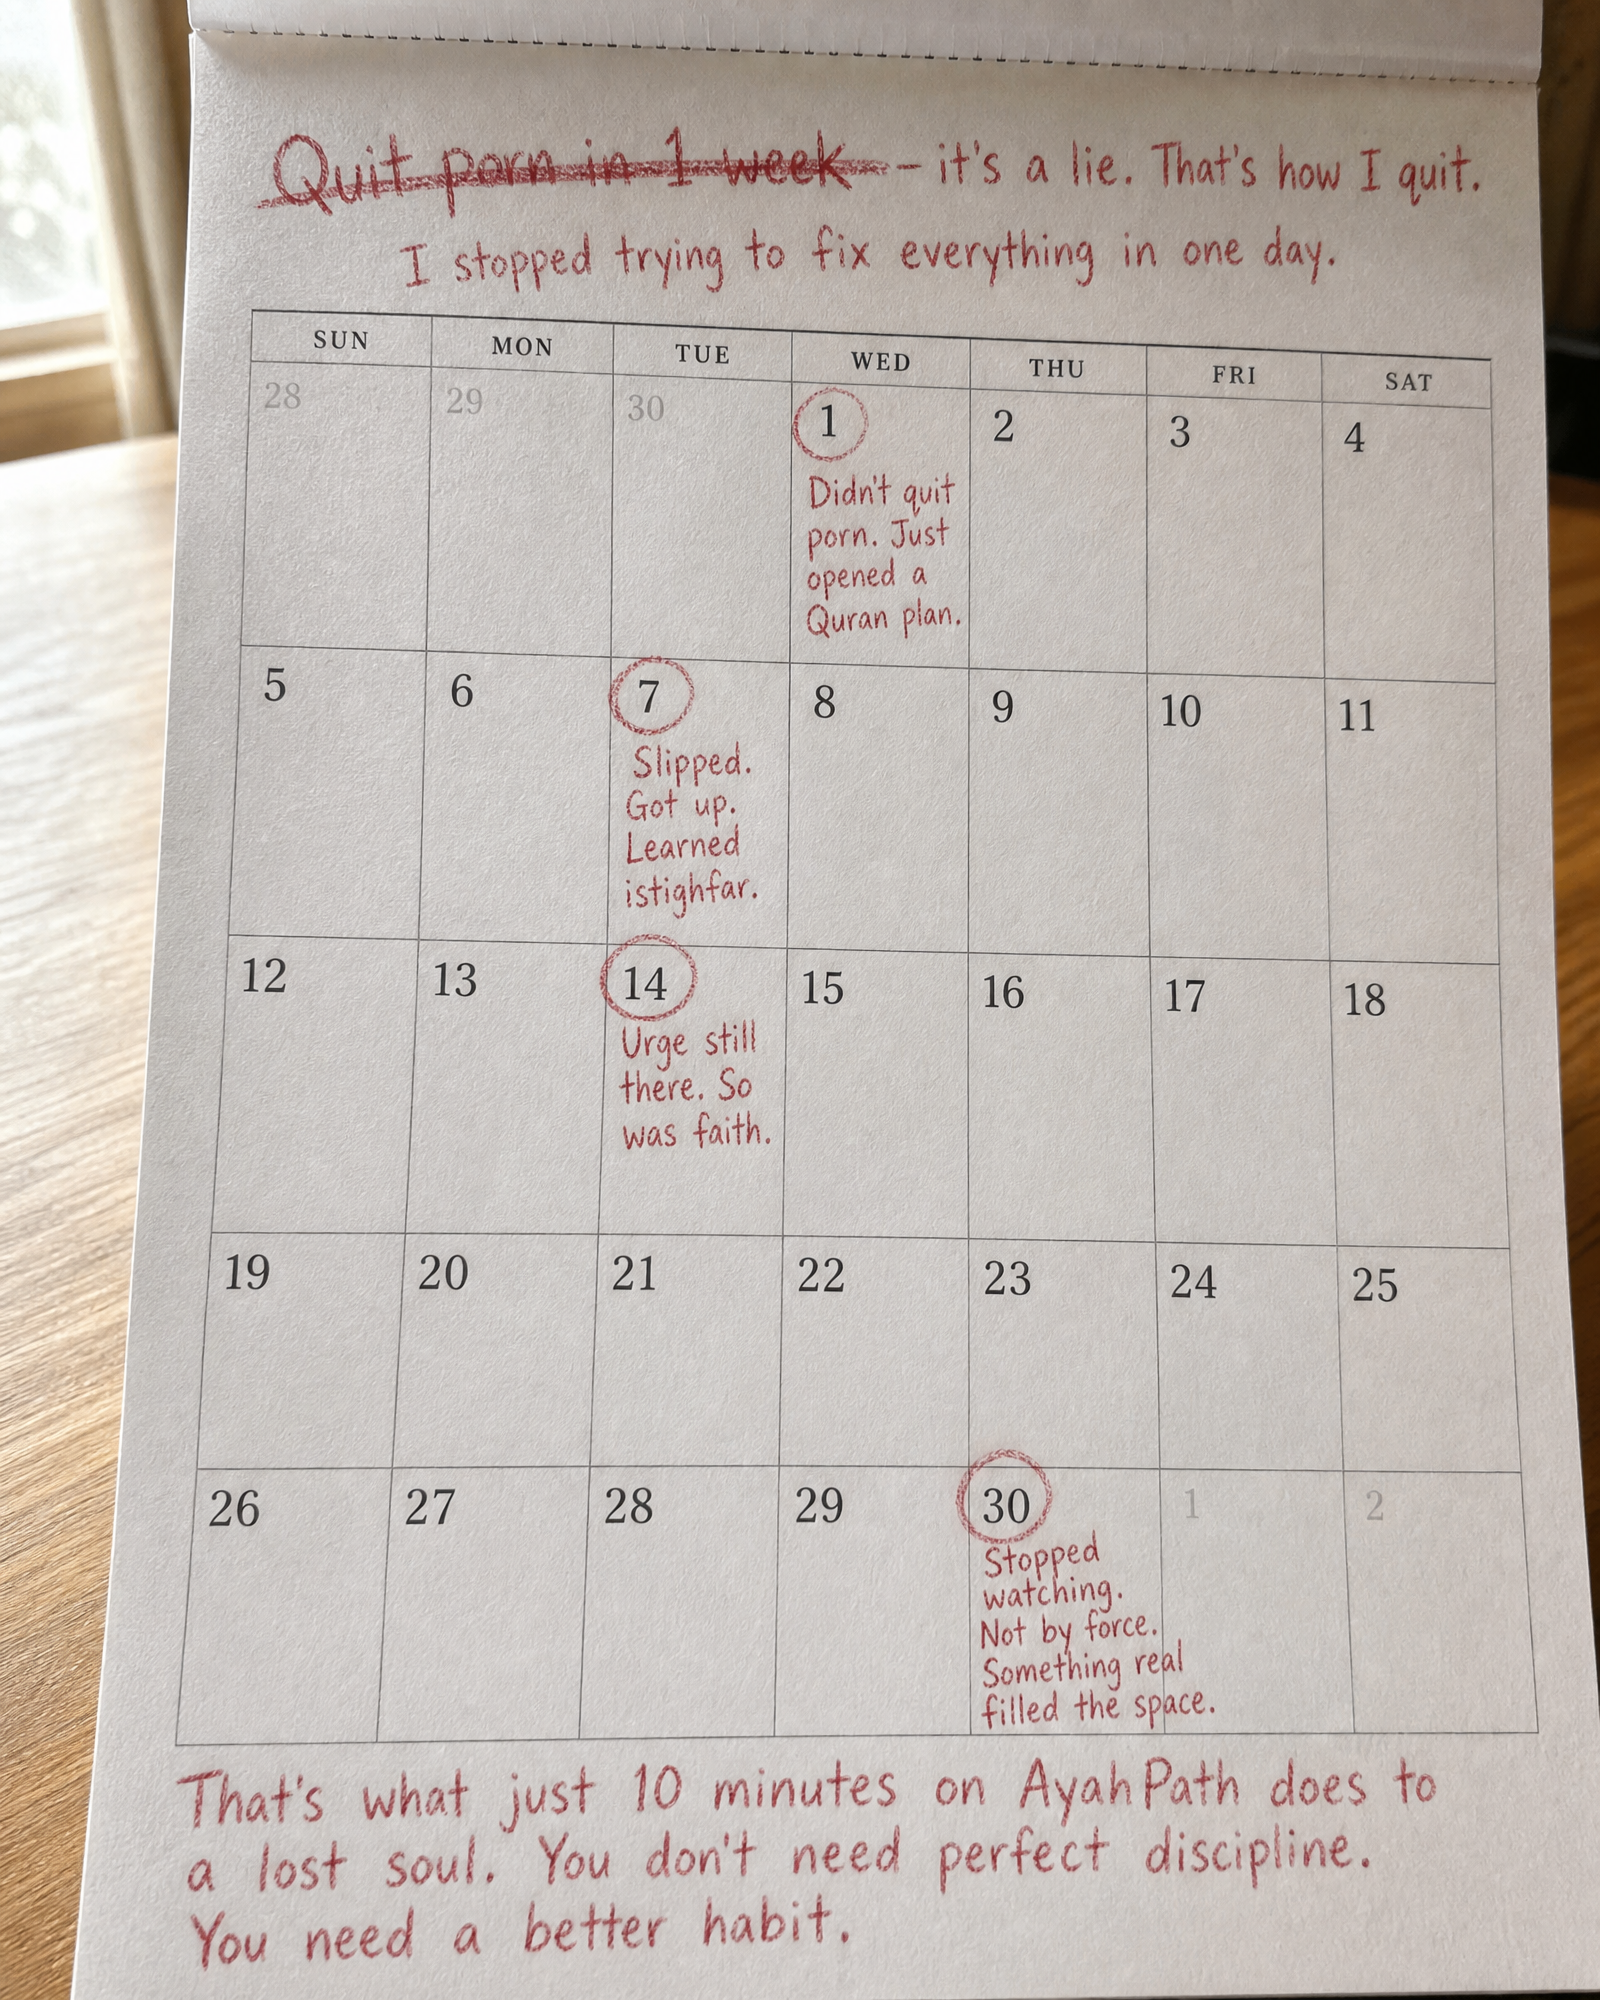 Quit porn in 1 week – it's a lie. That's how I quit.
I stopped trying to fix everything in one day.
SUN MON TUE WED THU FRI SAT
28 29 30 1 2 3 4
Didn't quit
porn. Just
opened a
Quran plan.
5 6 7 8 9 10 11
Slipped.
Got up.
Learned
istighfar.
12 13 14 15 16 17 18
Urge still
there. So
was faith.
19 20 21 22 23 24 25
26 27 28 29 30 1 2
Stopped
watching.
Not by force.
Something real
filled the space.
That's what just 10 minutes on AyahPath does to
a lost soul. You don't need perfect discipline.
You need a better habit.